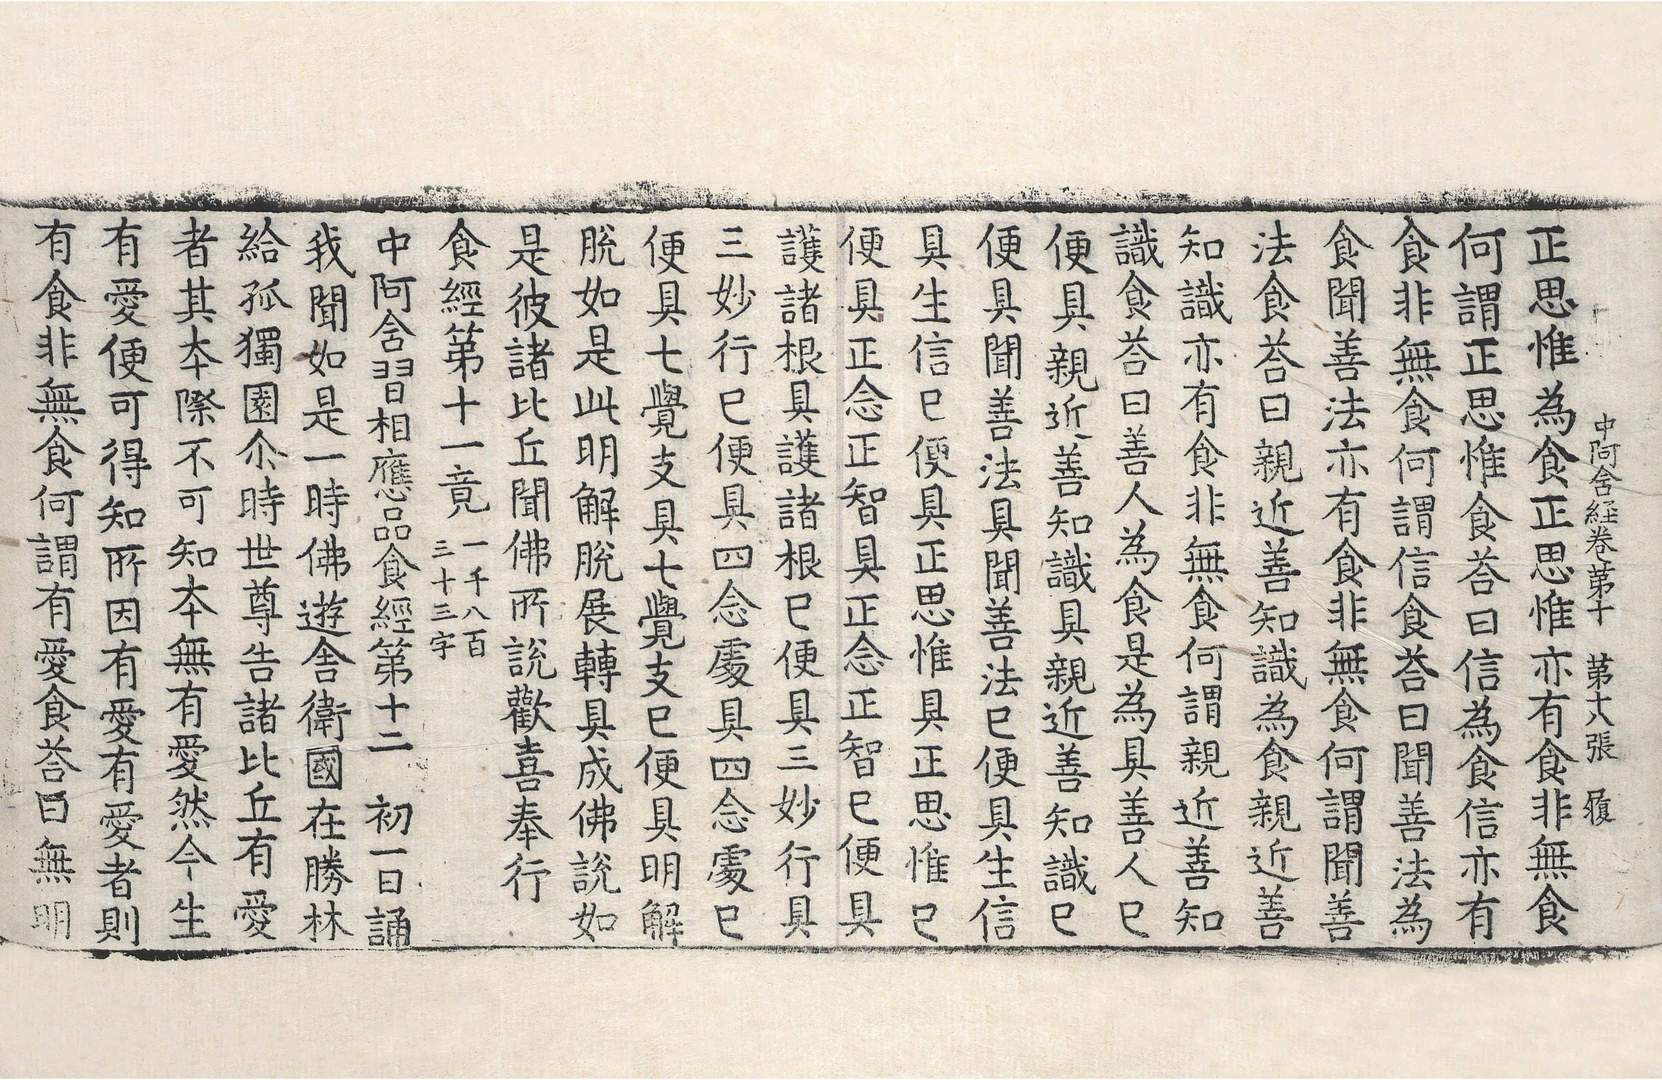 中阿含経卷第十　第十八張　履
正思惟為食正思惟亦有食非無食
何謂正思惟食荅曰信為食信亦有
食非無食何謂信食荅曰聞善法為
食聞善法亦有食非無食何謂聞善
法食荅曰親近善知識為食親近善
知識亦有食非無食何謂親近善知
識食荅曰善人為食是為具善人已
便具親近善知識具親近善知識已
便具聞善法具聞善法已便具生信
具生信已便具正思惟具正思惟已
便具正念正智具正念正智已便具
護諸根具護諸根已便具三妙行具
三妙行已便具四念處具四念處已
便具七覺支具七覺支已便具明解
脫如是此明解脫展轉具成佛說如
是彼諸比丘聞佛所說歡喜奉行
食經第十一竟
一千八百
三十三字
中阿含習相應品食經第十二　初一日誦
我聞如是一時佛遊舍衛國在勝林
給孤獨園尒時世尊告諸比丘有愛
者其夲際不可知夲無有愛然今生
有愛便可得知所因有愛有愛者則
有食非無食何謂有愛食荅曰無明